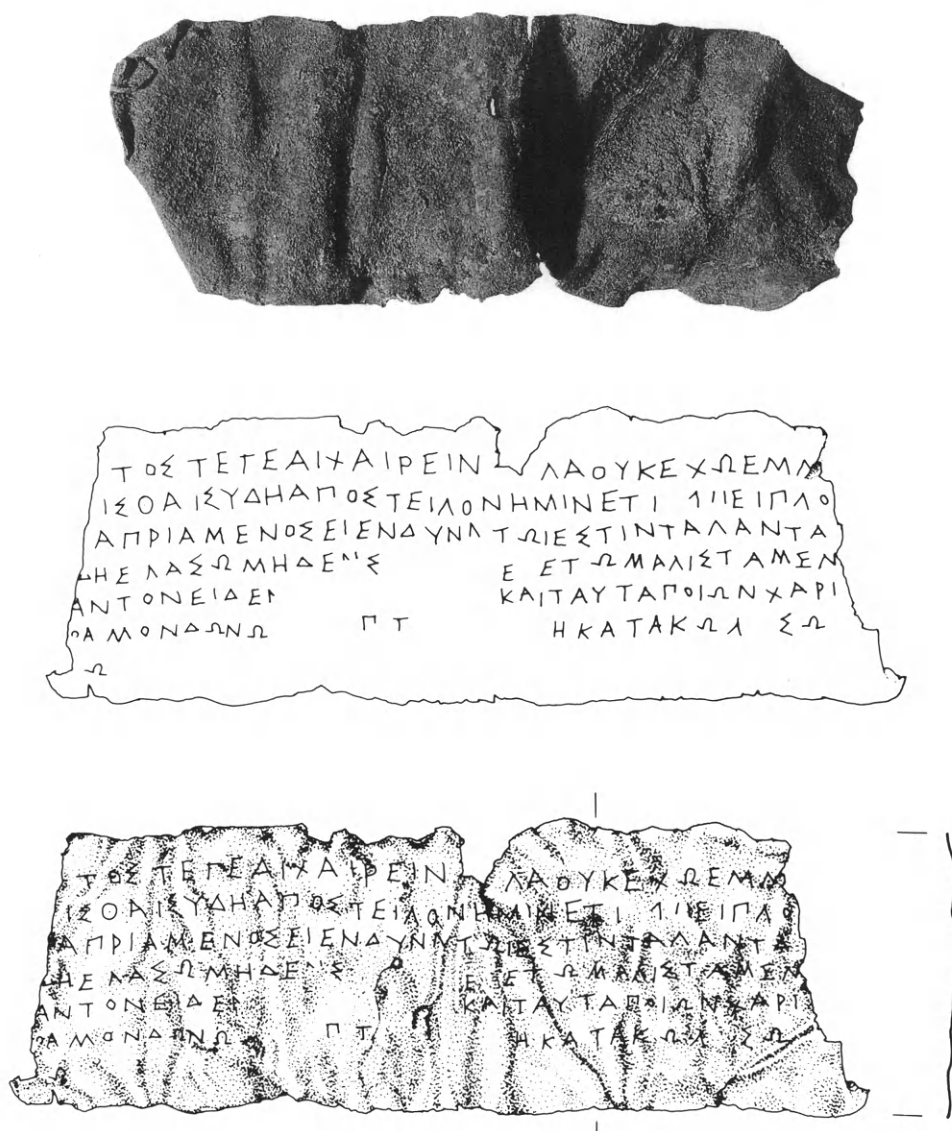 ΤΟΣΤΕΓΕΑΙΧΑΙΡΕΙΝ ΛΑΟΥΚΕΧΩΕΜΛ
ΙΣΟΑΙΣΥΔΗΑΠΟΣΤΕΙΛΟΝΗΜΙΝΕΤΙ ΕΙΠΛΟ
ΑΠΡΙΑΜΕΝΟΣΕΙΕΝΔΥΝΛΤΩΙΕΣΤΙΝΤΑΛΑΝΤΑ
ΗΕΛΑΣΩΜΗΔΕ Σ Ε ΕΤΩΜΑΛΙΣΤΑΜΕΝ
ΑΝΤΟΝΕΙΔΕ ΚΑΙΤΑΥΤΑΠΟΙΩΝΧΑΡΙ
ΑΜΟΝΔΩΝΩ ΠΤ ΗΚΑΤΑΚΩΛ ΣΩ
Ω
ΤΟΣΤΕΓΕΑΙΧΑΙΡΕΙΝ ΛΑΟΥΚΕΧΩΕΜΛ
ΙΣΟΑΙΣΥΔΗΑΠΟΣΤΕΙΛΟΝΗΜΙΝΕΤΙ ΕΙΠΛΟ
ΑΠΡΙΑΜΕΝΟΣΕΙΕΝΔΥΝΛΤΩΙΕΣΤΙΝΤΑΛΑΝΤΑ
ΗΕΛΑΣΩΜΗΔΕ Σ Ε ΕΤΩΜΑΛΙΣΤΑΜΕΝ
ΑΝΤΟΝΕΙΔΕ ΚΑΙΤΑΥΤΑΠΟΙΩΝΧΑΡΙ
ΑΜΟΝΔΩΝΩ ΠΤ ΗΚΑΤΑΚΩΛ ΣΩ
Ω